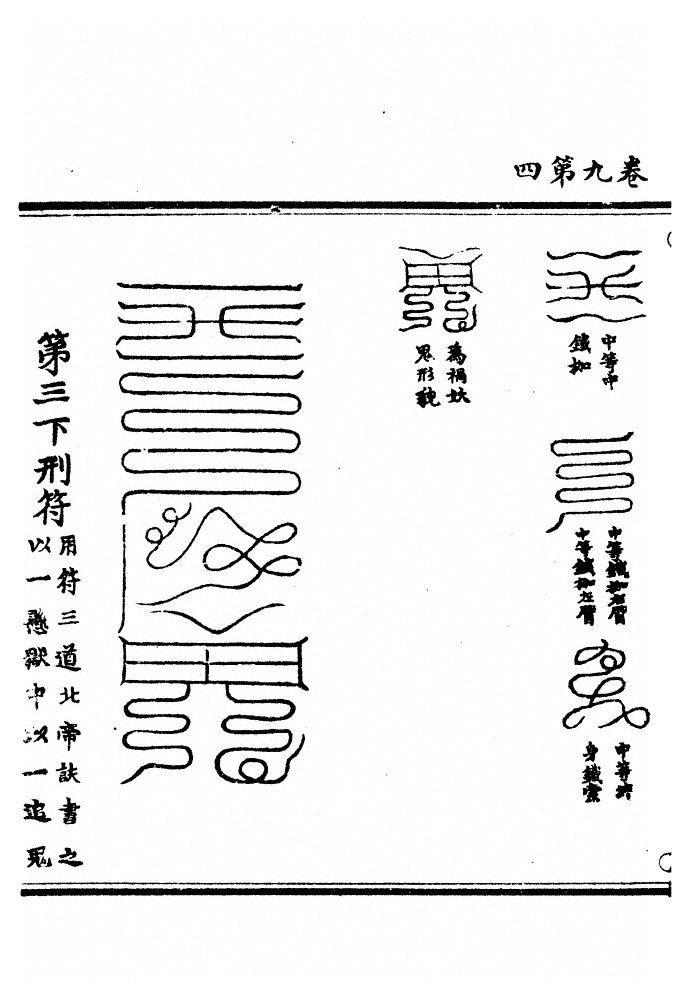 四第九卷
中等中
鐵枷
中等鐵枷右臂
中等鐵枷左臂
中等
身鐵
為禍妖
鬼形貌
第三下刑符
用符三道北帝訣書之
以一懸獄中以一追鬼